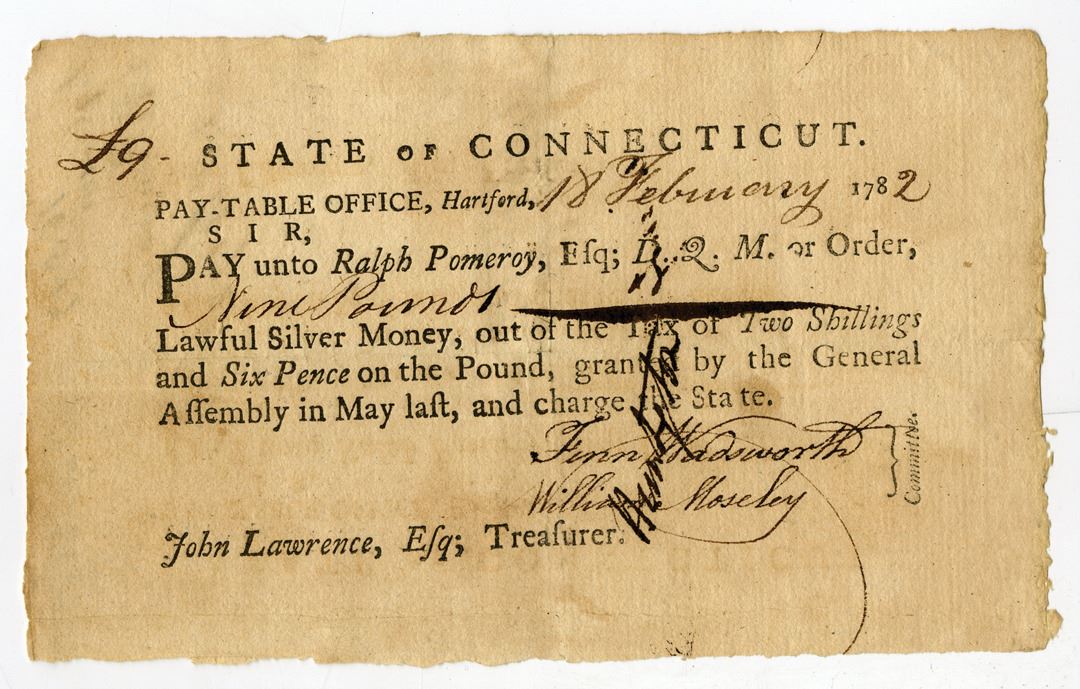 £9-
STATE OF CONNECTICUT.
PAY-TABLE OFFICE, Hartford, 18 February 1782
SIR,
PAY unto Ralph Pomeroy, Eſq; D. Q. M. or Order,
Nine Pounds
Lawful Silver Money, out of the Tax of Two Shillings
and Six Pence on the Pound, granted by the General
Aſſembly in May laſt, and charge the State.
Fenn Wadsworth
William Moseley
Committee.
John Lawrence, Eſq; Treaſurer.